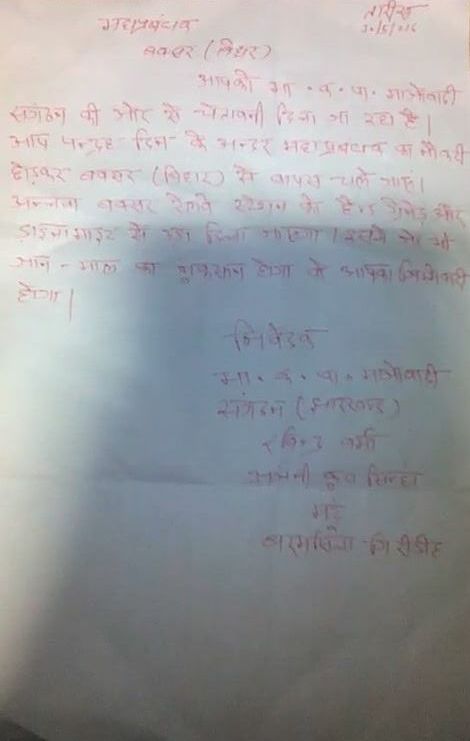 तारीख
महाप्रबंधक
बक्सर (बिहार)
आपको भा. क. पा. माओवादी
संगठन की ओर से चेतावनी दिया जा रहा है।
आप पन्द्रह दिन के अन्दर महाप्रबंधक का नौकरी
छोड़कर बक्सर (बिहार) से वापस चले जाएं।
अन्यथा बक्सर रेलवे स्टेशन को हैन्ड ग्रेनेड और
डाइनामाइट से उड़ा दिया जाएगा। इससे जो भी
जान-माल का नुकसान होगा वो आपका जिम्मेवारी
होगा।
निवेदक
भा. क. पा. माओवादी
संगठन (झारखण्ड)
वर्मा
सिन्हा
गिरीडीह